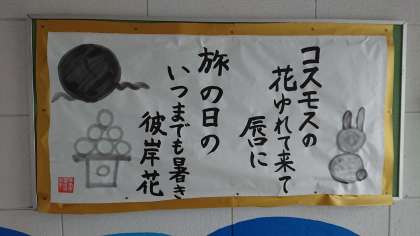 コスモスの
花ゆれて来て
唇に
旅の日の
いつまでも暑き
彼岸花